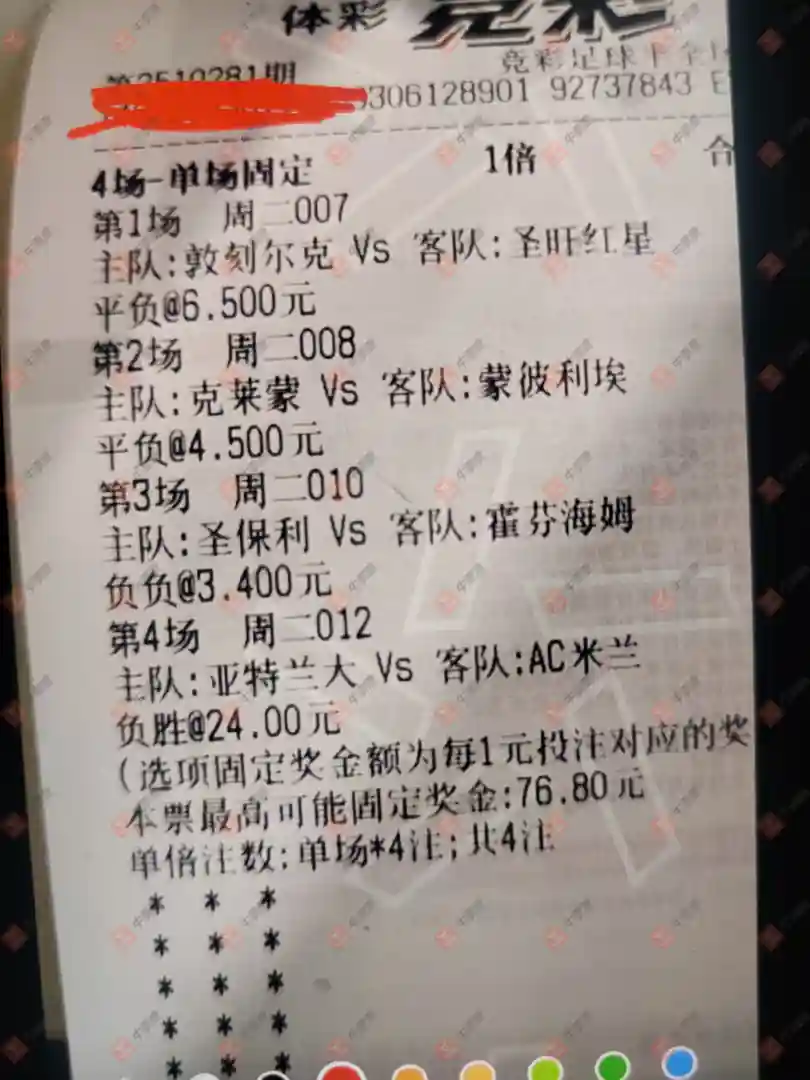 体彩 竞彩
竞彩足球
306128901 92737843 E
4场-单场固定 1倍 合
第1场 周二007
主队:敦刻尔克 Vs 客队:圣旺红星
平负@6.500元
第2场 周二008
主队:克莱蒙 Vs 客队:蒙彼利埃
平负@4.500元
第3场 周二010
主队:圣保利 Vs 客队:霍芬海姆
负负@3.400元
第4场 周二012
主队:亚特兰大 Vs 客队:AC米兰
负胜@24.00元
(选项固定奖金额为每1元投注对应的奖
本票最高可能固定奖金:76.80元
单倍注数:单场*4注;共4注
* * *
* * *
* * *
* * *
* * *